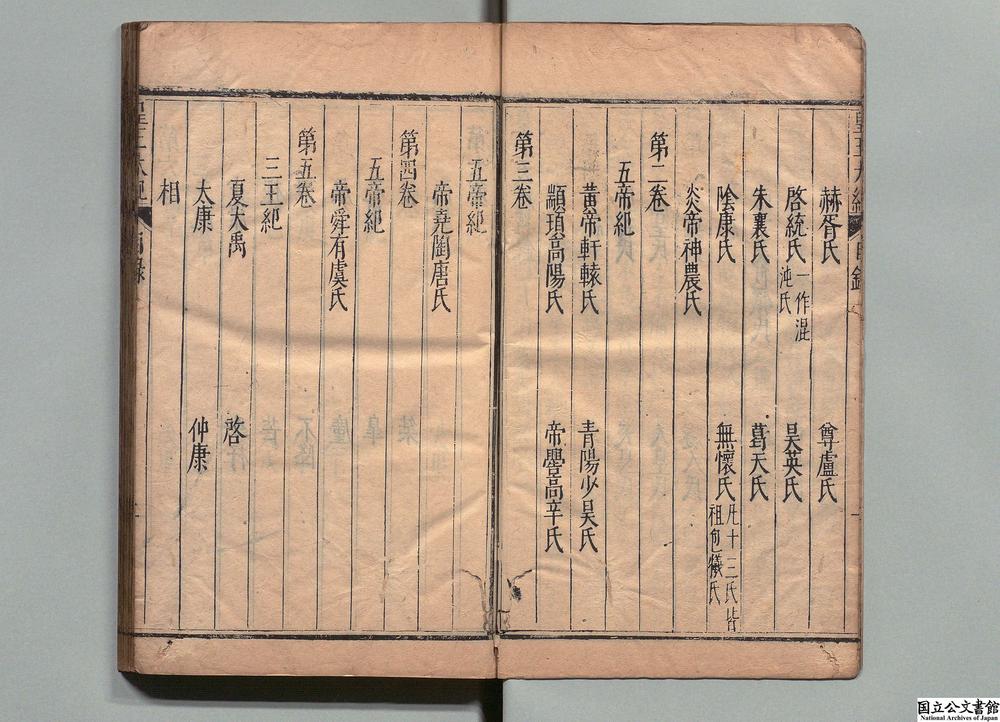 赫胥氏 尊盧氏
啓統氏一作混沌氏 吴英氏
朱襄氏 葛天氏
陰康氏 無懷氏凡十三氏皆祖包犧氏
炎帝神農氏
第二卷
五帝紀
黄帝軒轅氏 青陽少昊氏
顓頊高陽氏 帝嚳高辛氏
第三卷
五帝紀
帝堯陶唐氏
第四卷
五帝紀
帝舜有虞氏
第五卷
三王紀
夏大禹 啓
太康 仲康
相
国立公文書館
National Archives of Japan